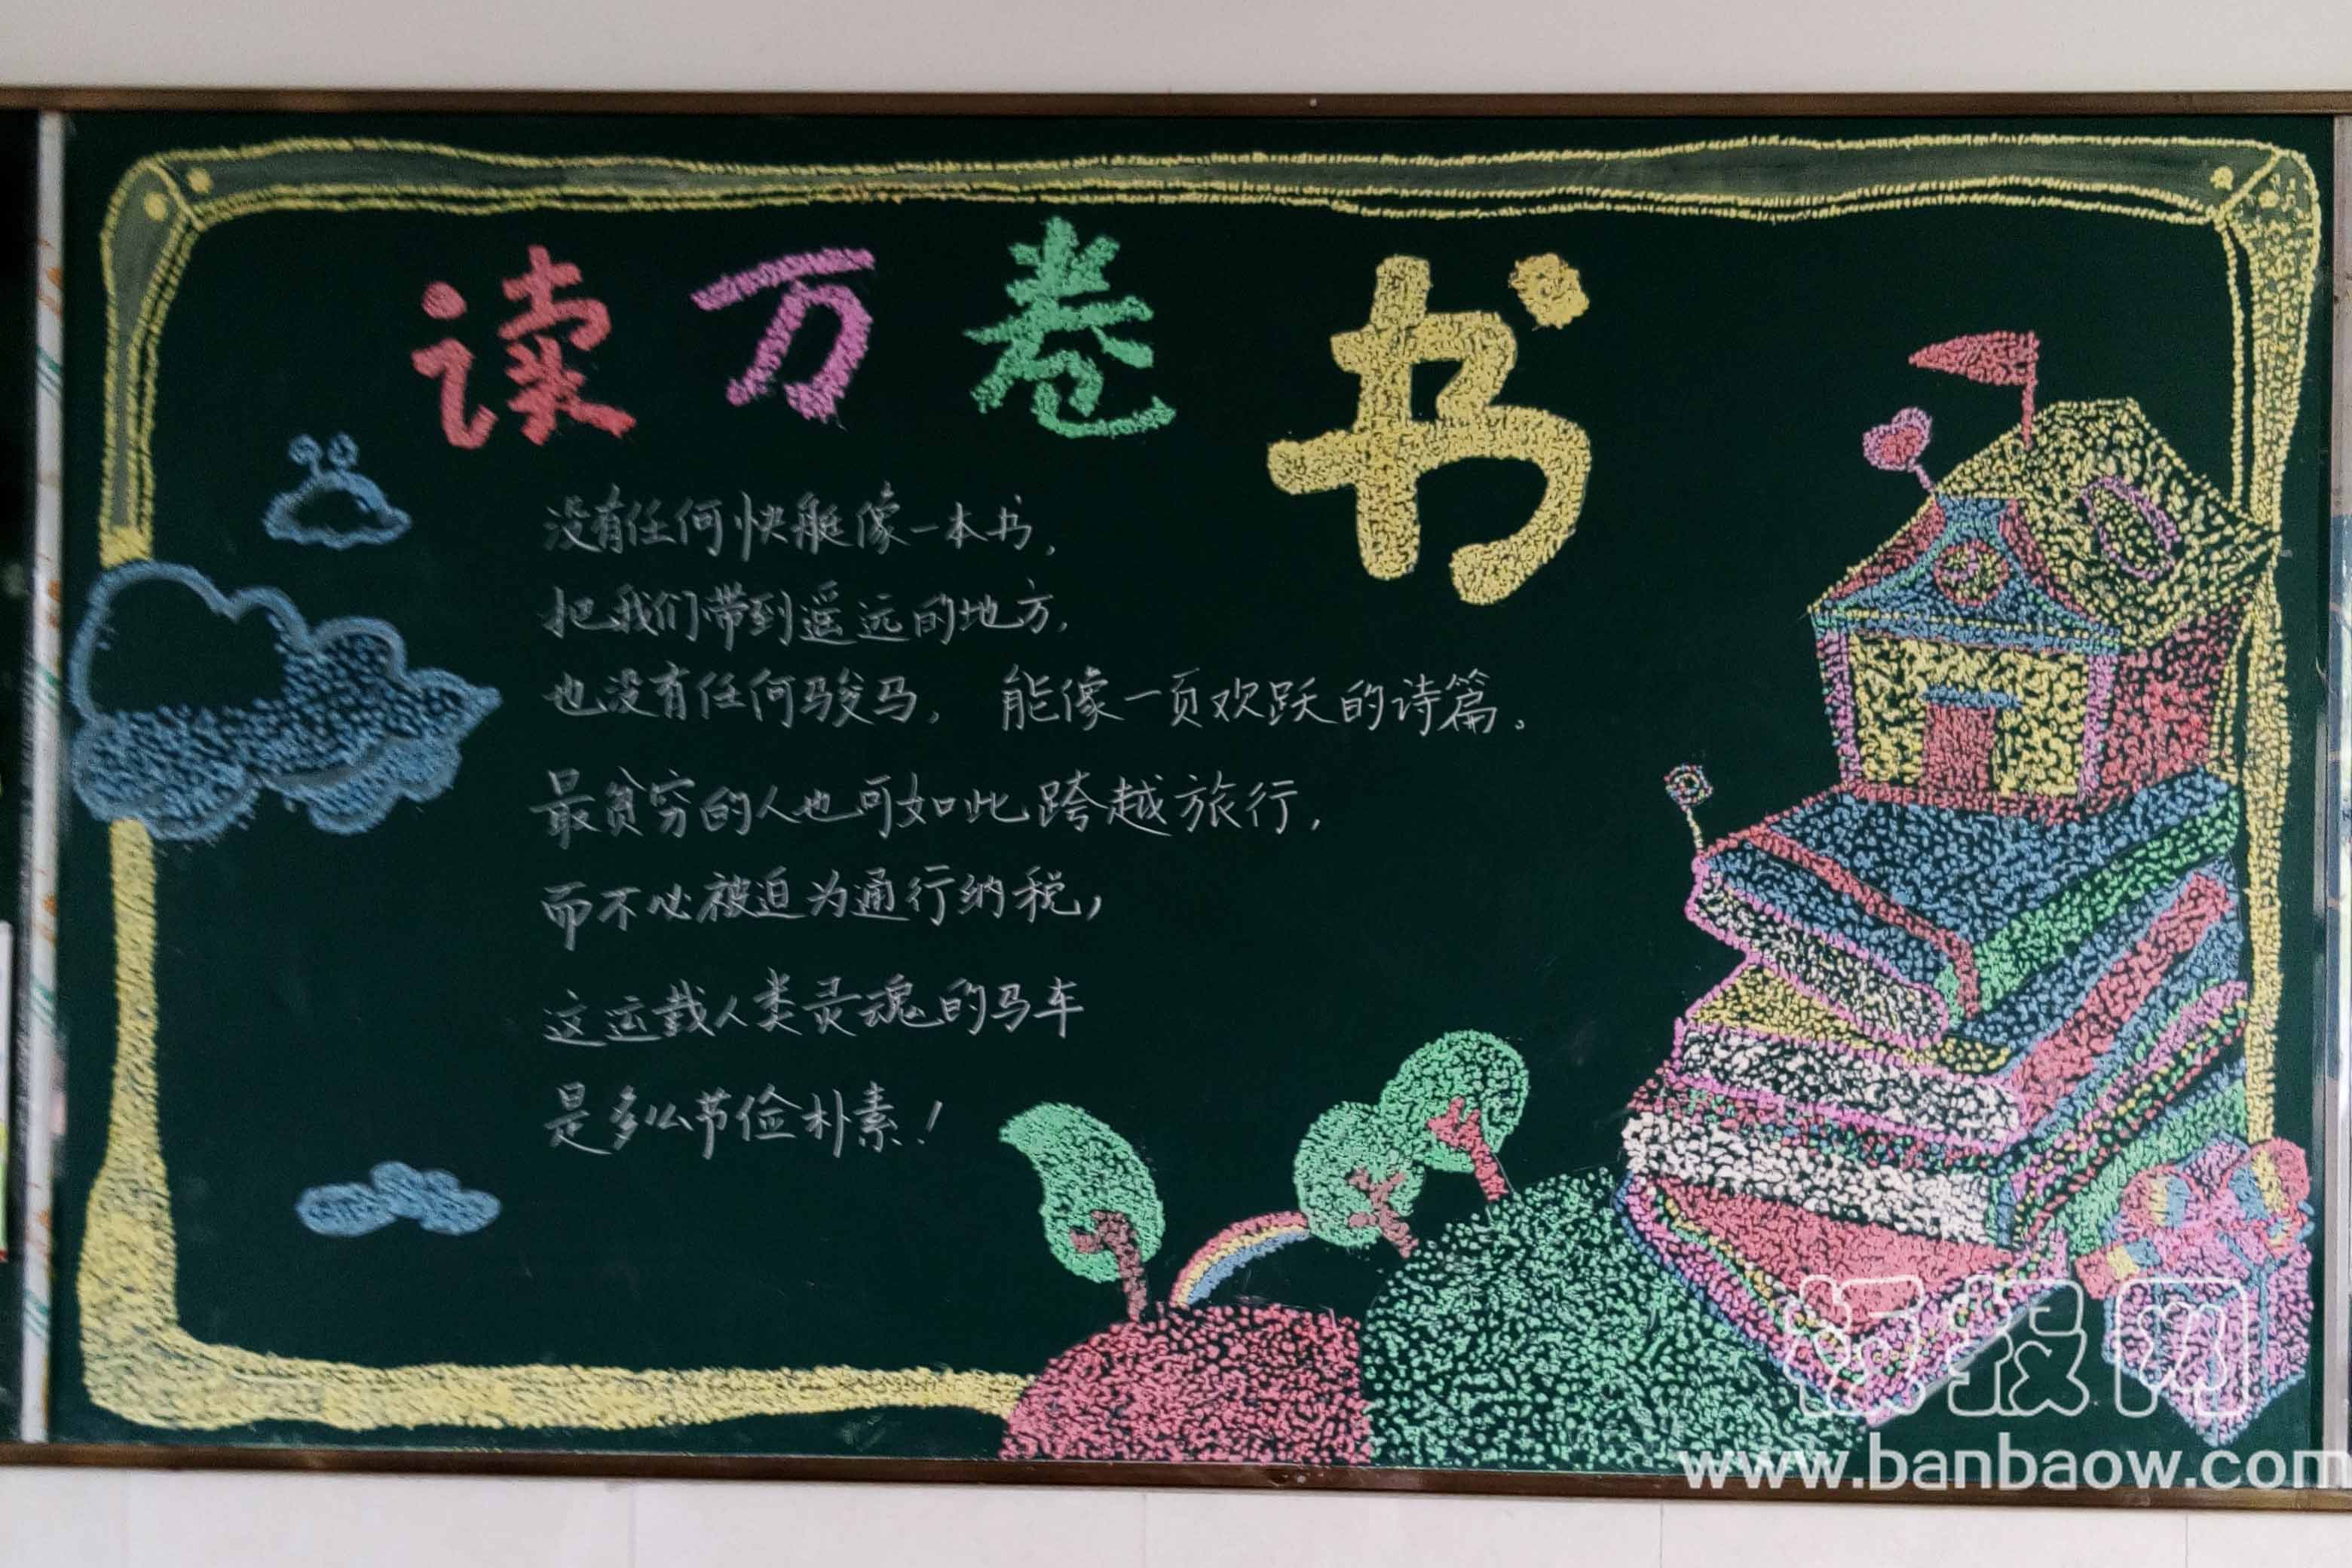 读万卷书
没有任何快艇像一本书,
把我们带到遥远的地方,
也没有任何骏马, 能像一页欢跃的诗篇。
最贫穷的人也可如此跨越旅行,
而不必被迫为通行纳税,
这运载人类灵魂的马车
是多么节俭朴素!
板报网
www.banbaow.com